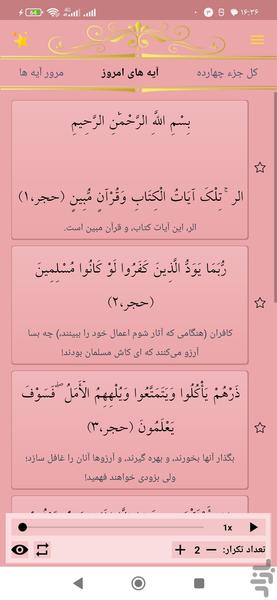 ۱۶:۳۶
64
کل جزء چهارده
آیه های امروز
مرور آیه ها
بِسْمِ اللَّهِ الرَّحْمَٰنِ الرَّحِيمِ
الر ۚ تِلْكَ آيَاتُ الْكِتَابِ وَقُرْآنٍ مُّبِينٍ (حجر،۱)
الر، این آیات کتاب، و قرآن مبین است.
رُّبَمَا يَوَدُّ الَّذِينَ كَفَرُوا لَوْ كَانُوا مُسْلِمِينَ
(حجر،۲)
کافران (هنگامی که آثار شوم اعمال خود را ببینند،) چه بسا
آرزو می‌کنند که ای کاش مسلمان بودند!
ذَرْهُمْ يَأْكُلُوا وَيَتَمَتَّعُوا وَيُلْهِهِمُ الْأَمَلُ ۖ فَسَوْفَ
يَعْلَمُونَ (حجر،۳)
بگذار آنها بخورند، و بهره گیرند، و آرزوها آنان را غافل سازد؛
ولی بزودی خواهند فهمید!
1x
تعداد تکرار: − 2 +
بازار